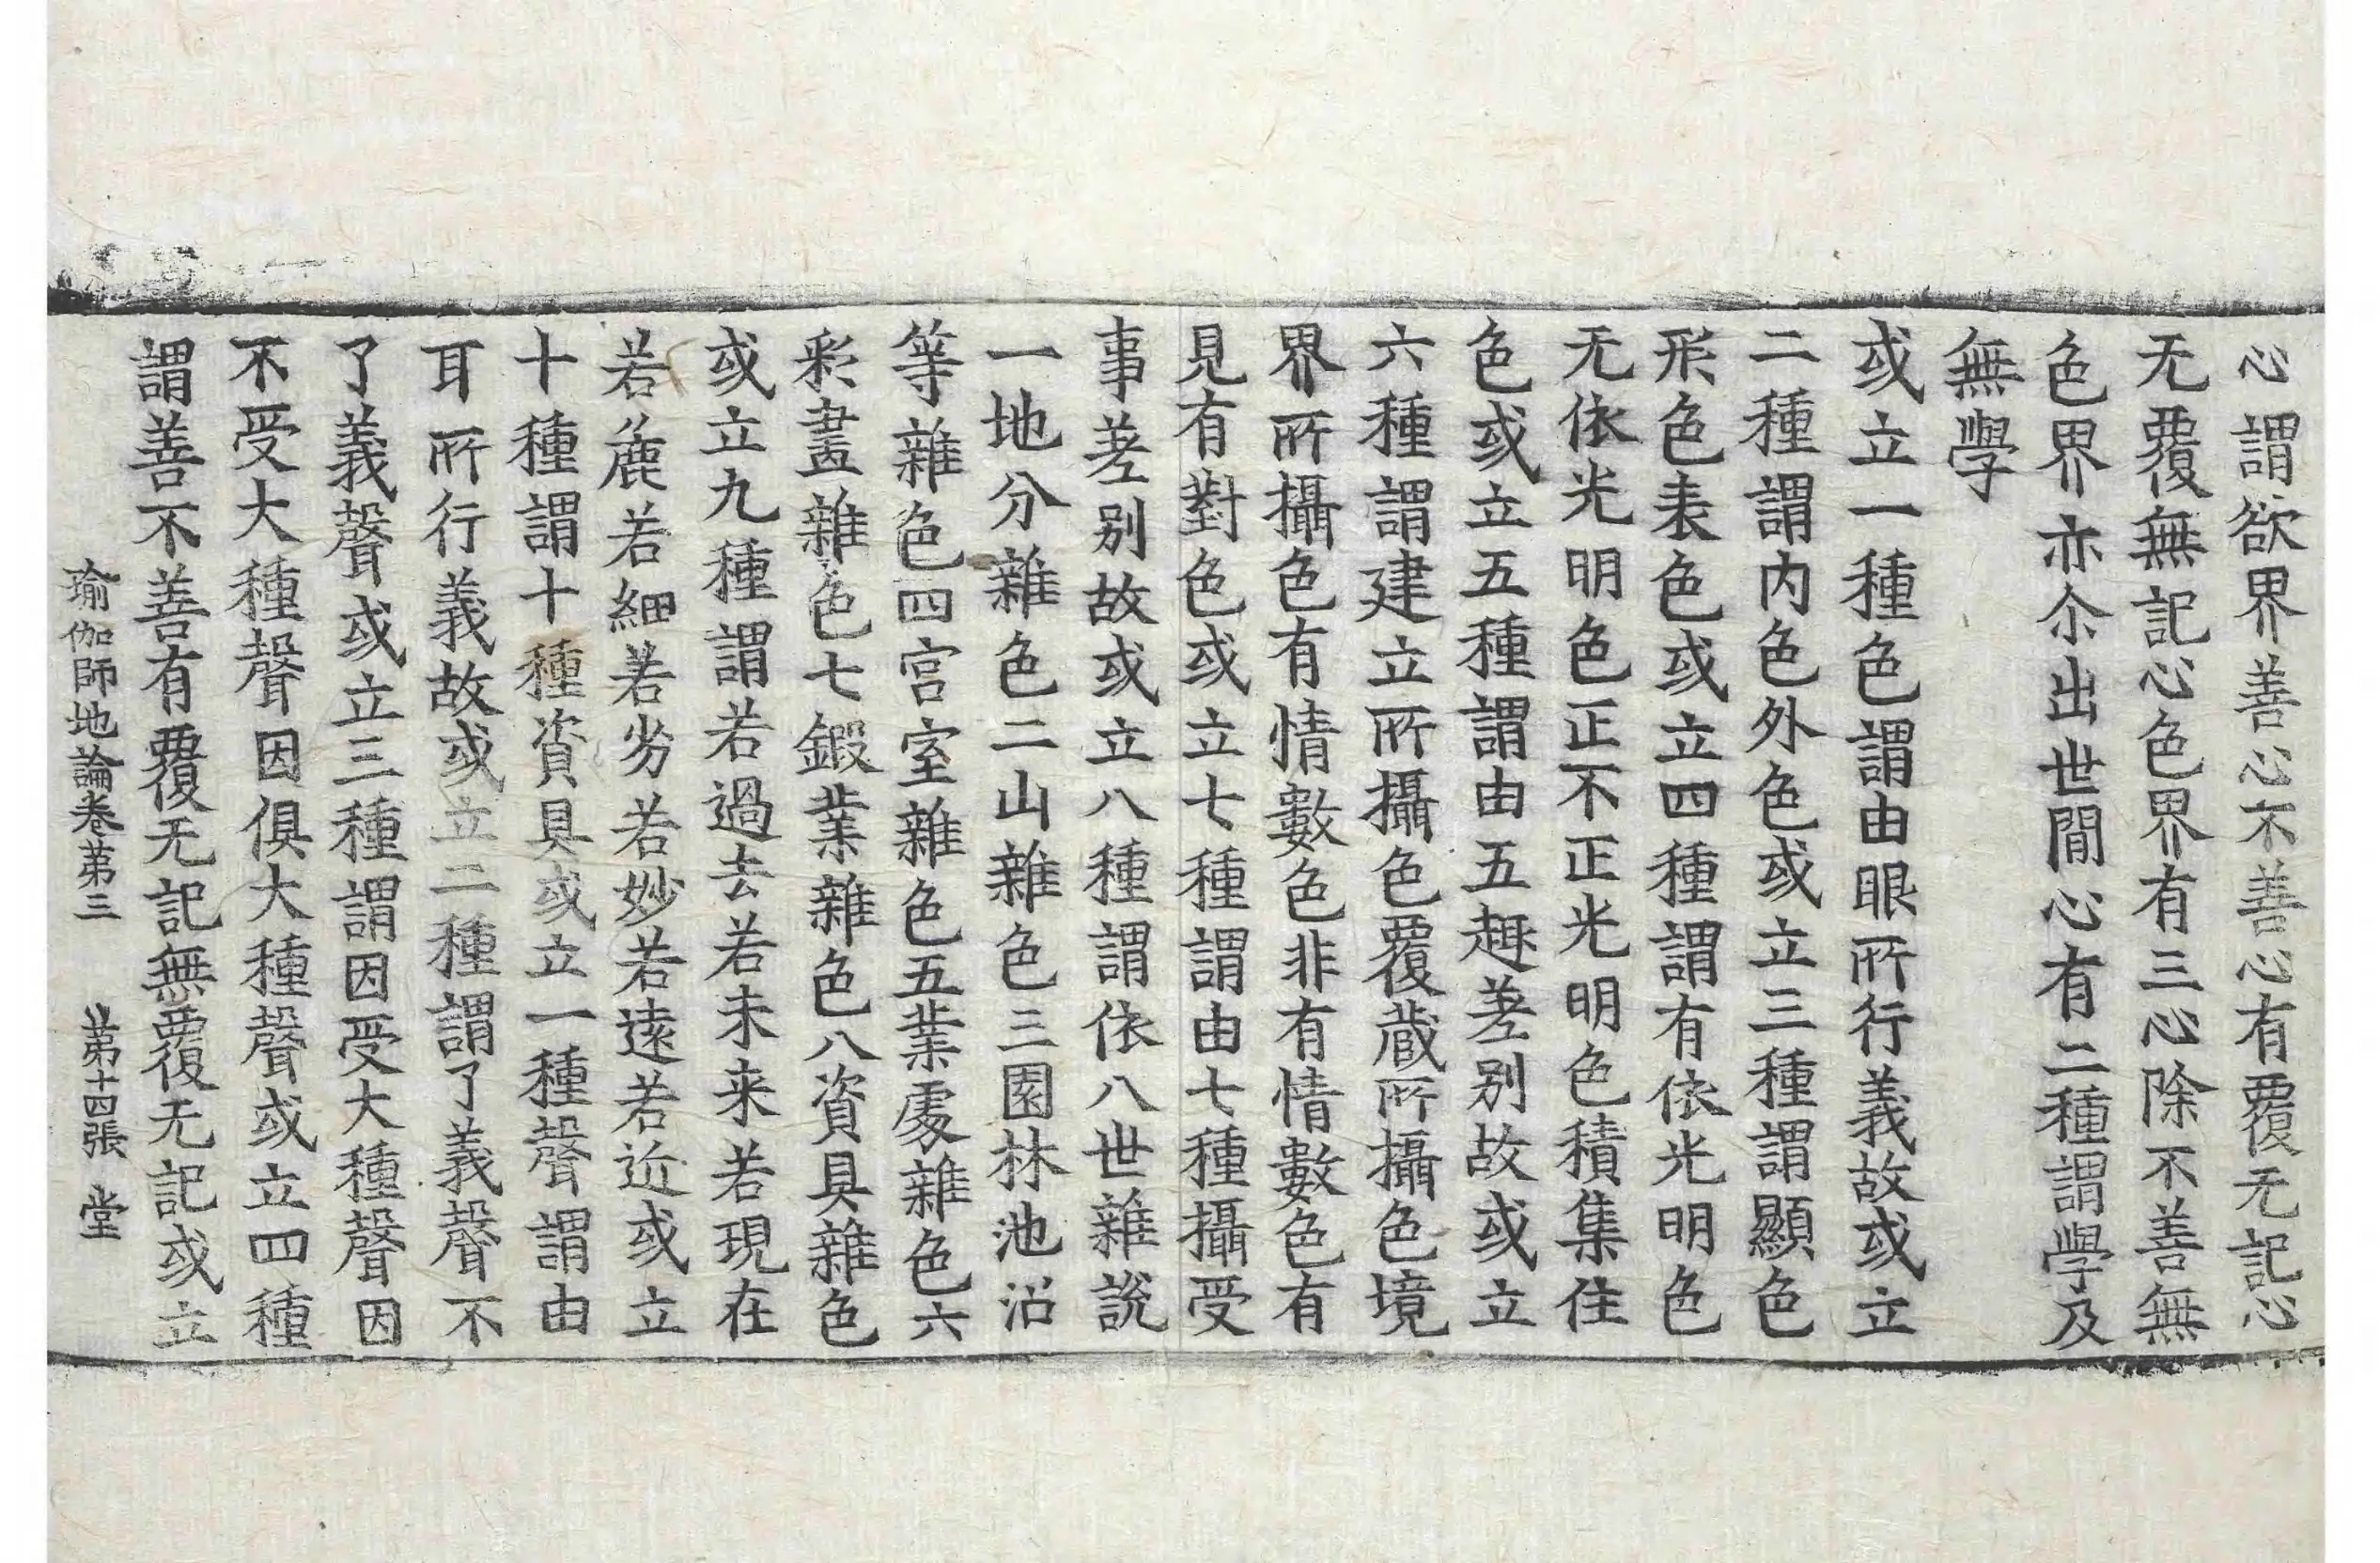 心謂欲界善心不善心有覆无記心
无覆無記心色界有三心除不善無
色界亦尒出世間心有二種謂學及
無學
或立一種色謂由眼所行義故或立
二種謂内色外色或立三種謂顯色
形色表色或立四種謂有依光明色
无依光明色正不正光明色積集住
色或立五種謂由五趣差别故或立
六種謂建立所攝色覆蔵所攝色境
界所攝色有情數色非有情數色有
見有對色或立七種謂由七種攝受
事差别故或立八種謂依八世雜說
一地分雜色二山雜色三園林池沼
等雜色四宫室雜色五業處雜色六
彩畫雜色七鍛業雜色八資具雜色
或立九種謂若過去若未来若現在
若麁若細若劣若妙若遠若近或立
十種謂十種資具或立一種聲謂由
耳所行義故或立二種謂了義聲不
了義聲或立三種謂因受大種聲因
不受大種聲因俱大種聲或立四種
謂善不善有覆无記無覆无記或立
瑜伽師地論卷第三 第十四張 堂